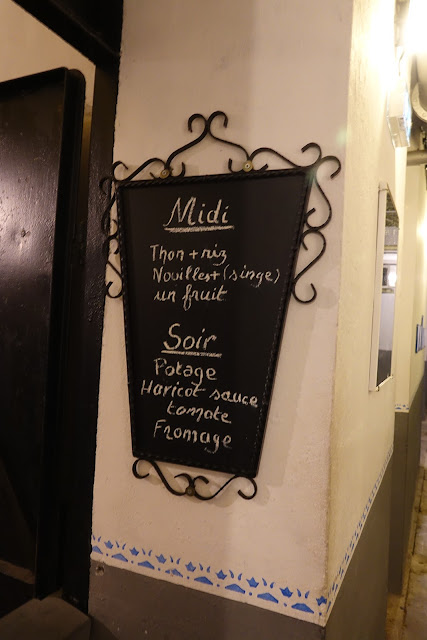 Midi
Thon + riz
Nouilles + (singe)
un fruit
Soir
Potage
Haricot sauce
tomate
Fromage